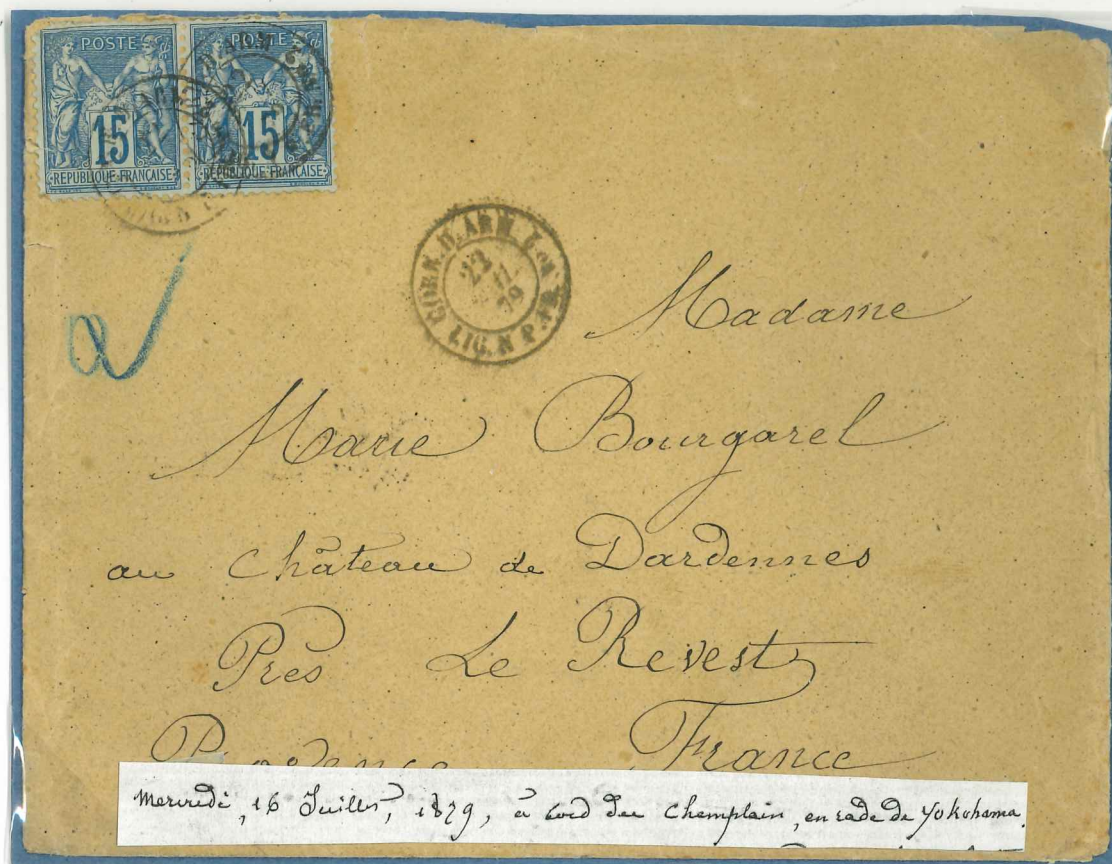 POSTE POSTE
15 15
REPUBLIQUE FRANÇAISE REPUBLIQUE FRANÇAISE
CORR. D. ARM.
LIG. N
22
79
Madame
Marie Bourgarel
au Château de Dardennes
Près Le Revest
France
Mercredi, 16 Juillet, 1879, à bord du Champlain, en rade de Yokohama.